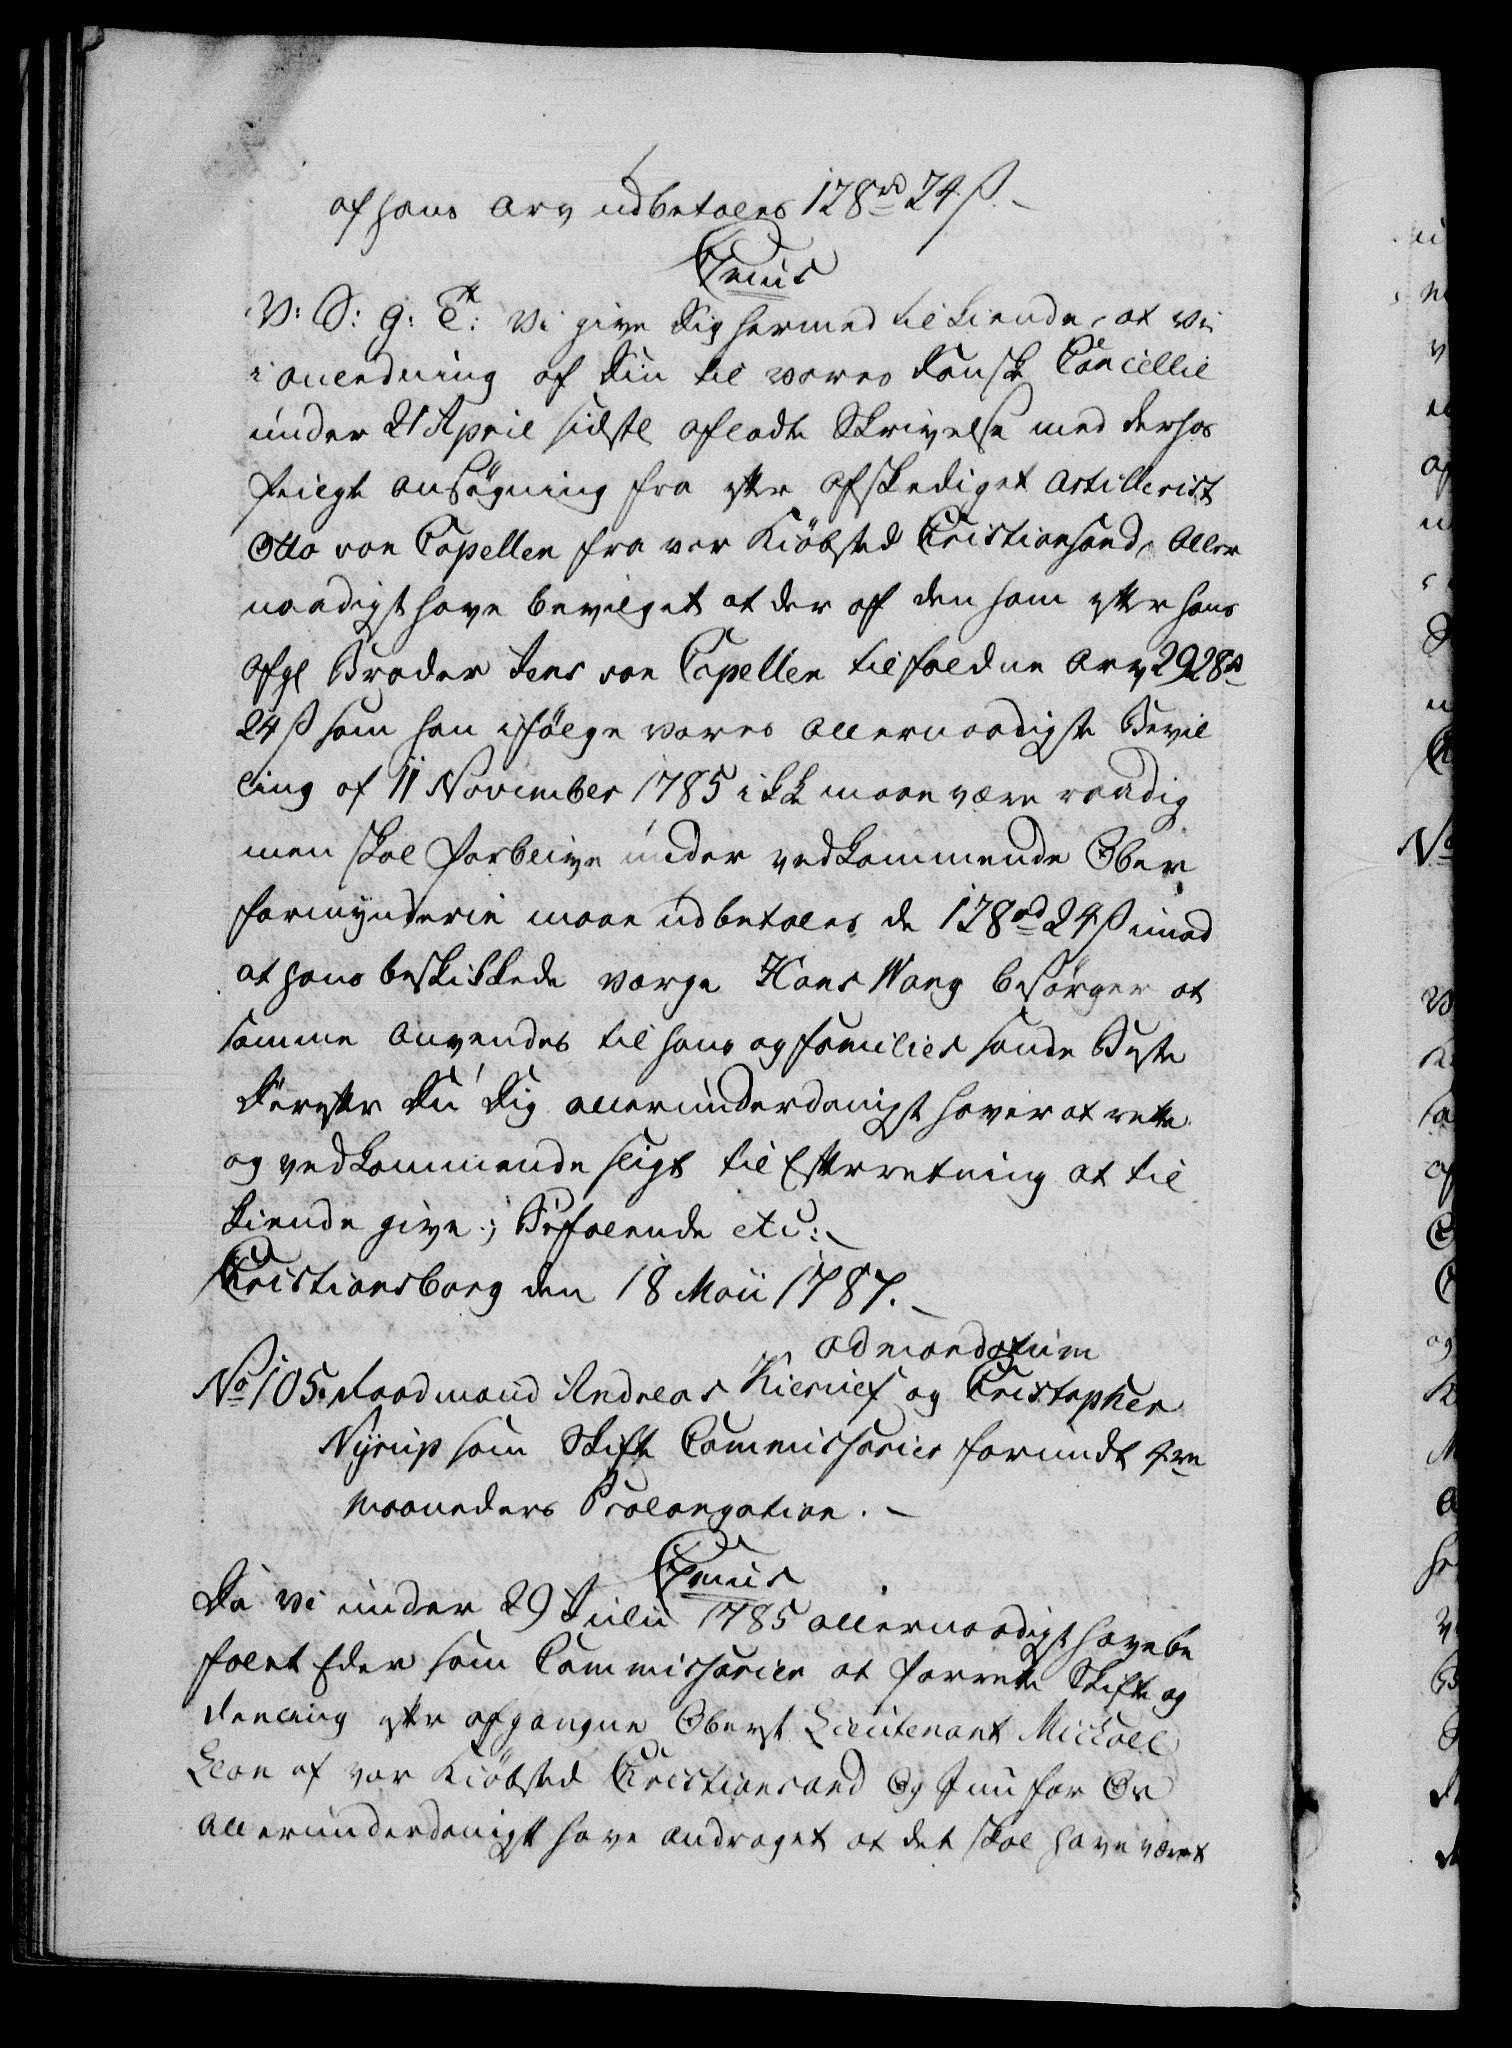 af hans Arv udbetales 128rd 24 ß.
C7mus
V: S: G: T: Vi give dig hermed tilkiende, at Vi
i anledning af din til vores danske Cancellie
under 21 April sidste afladte Skrivelse med derhos
føiegt ansøgning fra ester afskediget Artillerist
Otto von Capellen fra vor Kiöbsted Christiansand, Aller
naadigst have bevilget at der af den ham efter hans
afg: Broder Jens von Capellen tilfaldne Arv 2928rd
24 ß som han ifølge vores Allernaadigste Bevil
ling af 11 November 1785 ikke maae være raadig
men skal forblive under vedkommende Over
formynderie maae udbetales de 128rd 24 ß imod
at hans beskikkede Værge Hans Wang besörger at
samme anvendes til hans og Families sande Beste
Derefter Du Dig allerunderdanigst haver at rette
og vedkommende sligt til Efterretning at til
kiende give; Befalende etc:
Christiansborg den 18 Maii 1787.
ad mandatum
No 105. Raadmænd Andreas Kierulf og Christopher
Nyrup som Skifte Commissarier forundt 4re
Maaneders Prolongation.
C7mus
Da vi under 29 Julii 1785 allernaadigst have be
falet Eder som Commissarier at forrette Skifte og
Deeling efter afgangne Oberst Lieutenant Michael
Leon af vor Kiöbsted Christiansand Og I nu for Os
allerunderdanigst have andraget at det skal have været